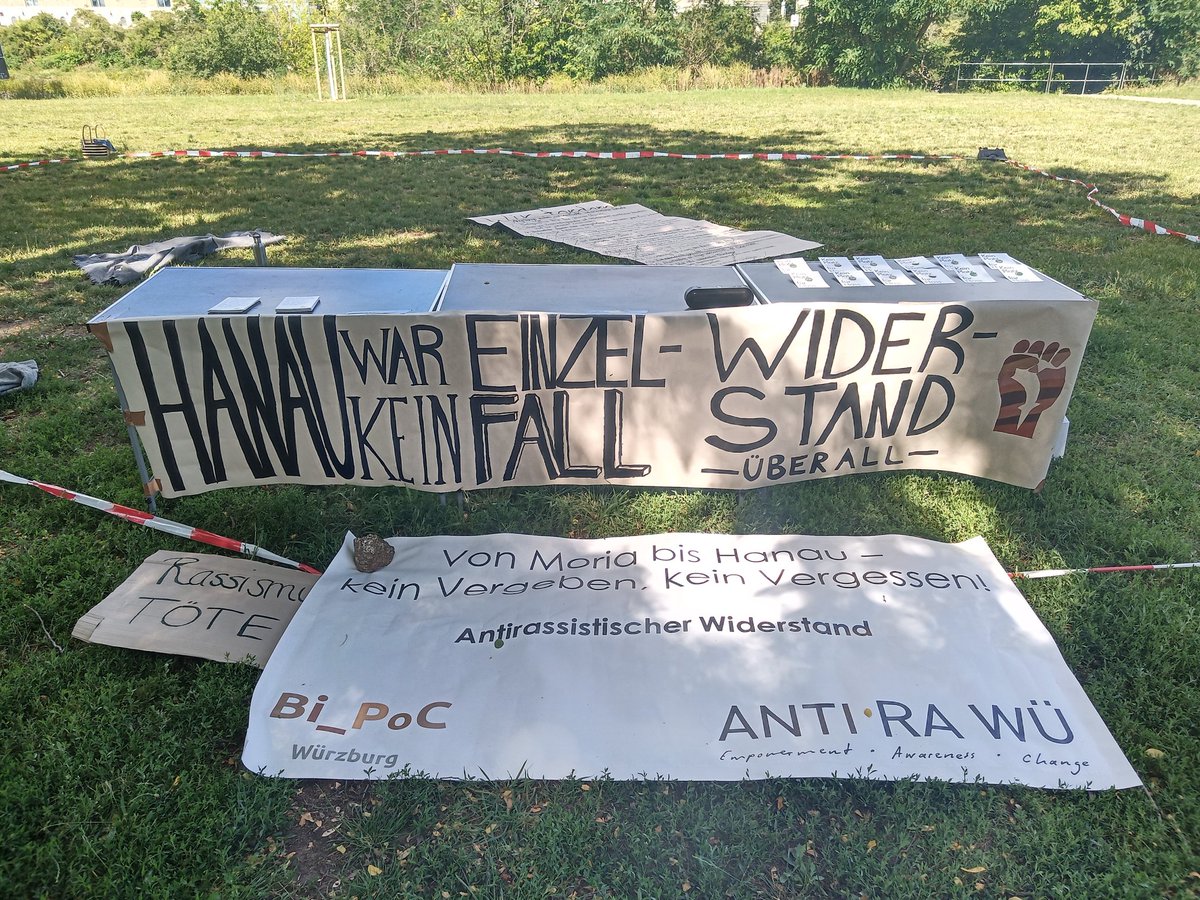 HANAU WAR EINZEL- WIDER-
KEIN FALL STAND
- ÜBERALL -
Rassismu
TÖTE
Von Moria bis Hanau –
kein Vergeben, kein Vergessen!
Antirassistischer Widerstand
Bi_PoC
Würzburg
ANTI·RA WÜ
Empowerment · Awareness · Change